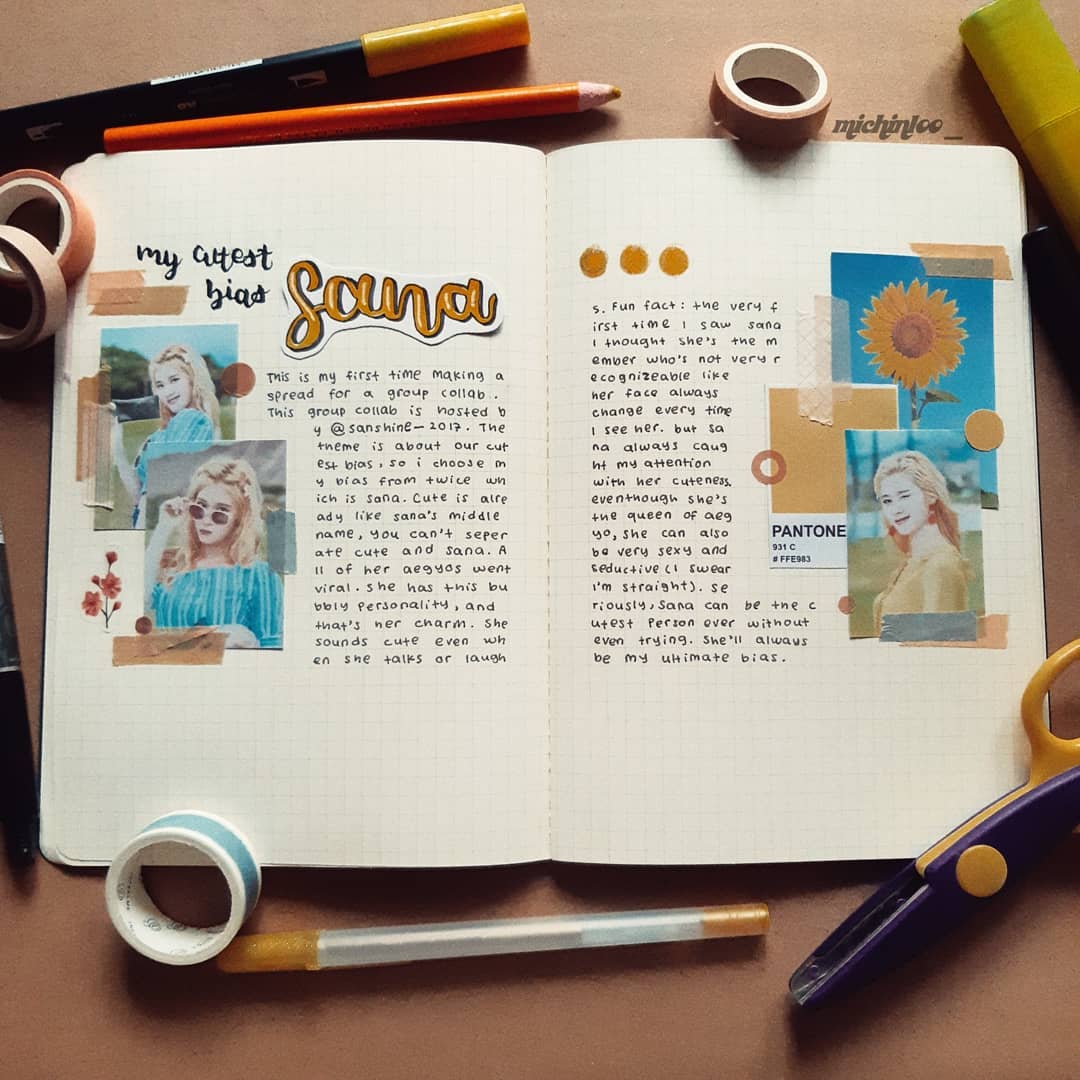 michin100_
my cutest
bias
Sana
This is my first time making a
spread for a group collab..
This group collab is hosted b
y @sanshine-2017. The
theme is about our cut
est bias, so i choose m
y bias from twice wh
ich is sana. Cute is alre
ady like sana's middle
name, you can't seper
ate cute and sana. A
ll of her aegyos went
viral. she has this bu
bbly personality, and
that's her charm. She
sounds cute even wh
en she talks or laugh
s. Fun fact: the very f
irst time I saw sana
I thought she's the m
ember who's not very r
ecognizeable like
her face always
change every time
I see her. but sa
na always caug
ht my attention
with her cuteness.
eventhough she's
the queen of aeg
yo, she can also
be very sexy and
seductive (I swear
I'm straight). Se
riously, Sana can be the c
utest person ever without
even trying. She'll always
be my ultimate bias.
PANTONE
931 C
# FFE983